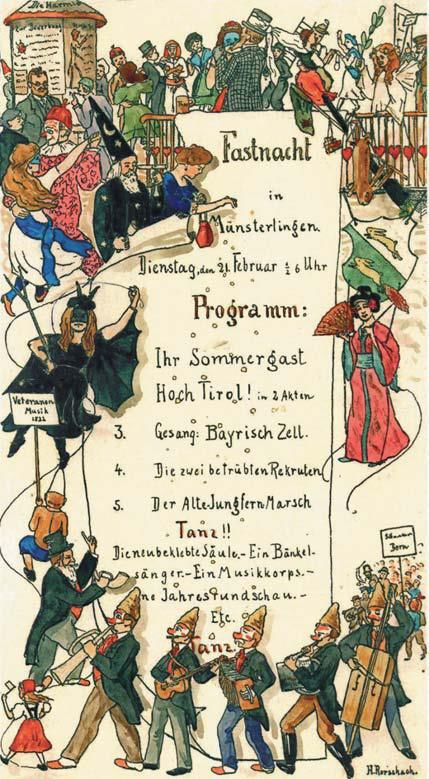 Die Harmo
Zur Bewerbung
Fastnacht
in
Münsterlingen.
Dienstag, den 21. Februar ½ 6 Uhr
Programm:
Ihr Sommergast
Hoch Tirol! in 2 Akten
Veteranen
Musik
3. Gesang: Bayrisch Zell.
4. Die zwei betrübten Rekruten
5. Der Alte-Jungfern-Marsch
Tanz!!
Die neubeklebte Säule.- Ein Bänkel-
sänger.- Ein Musikkorps.-
ne Jahresrundschau.-
Etc.
Tanz.
Bern
H. Rorschach.